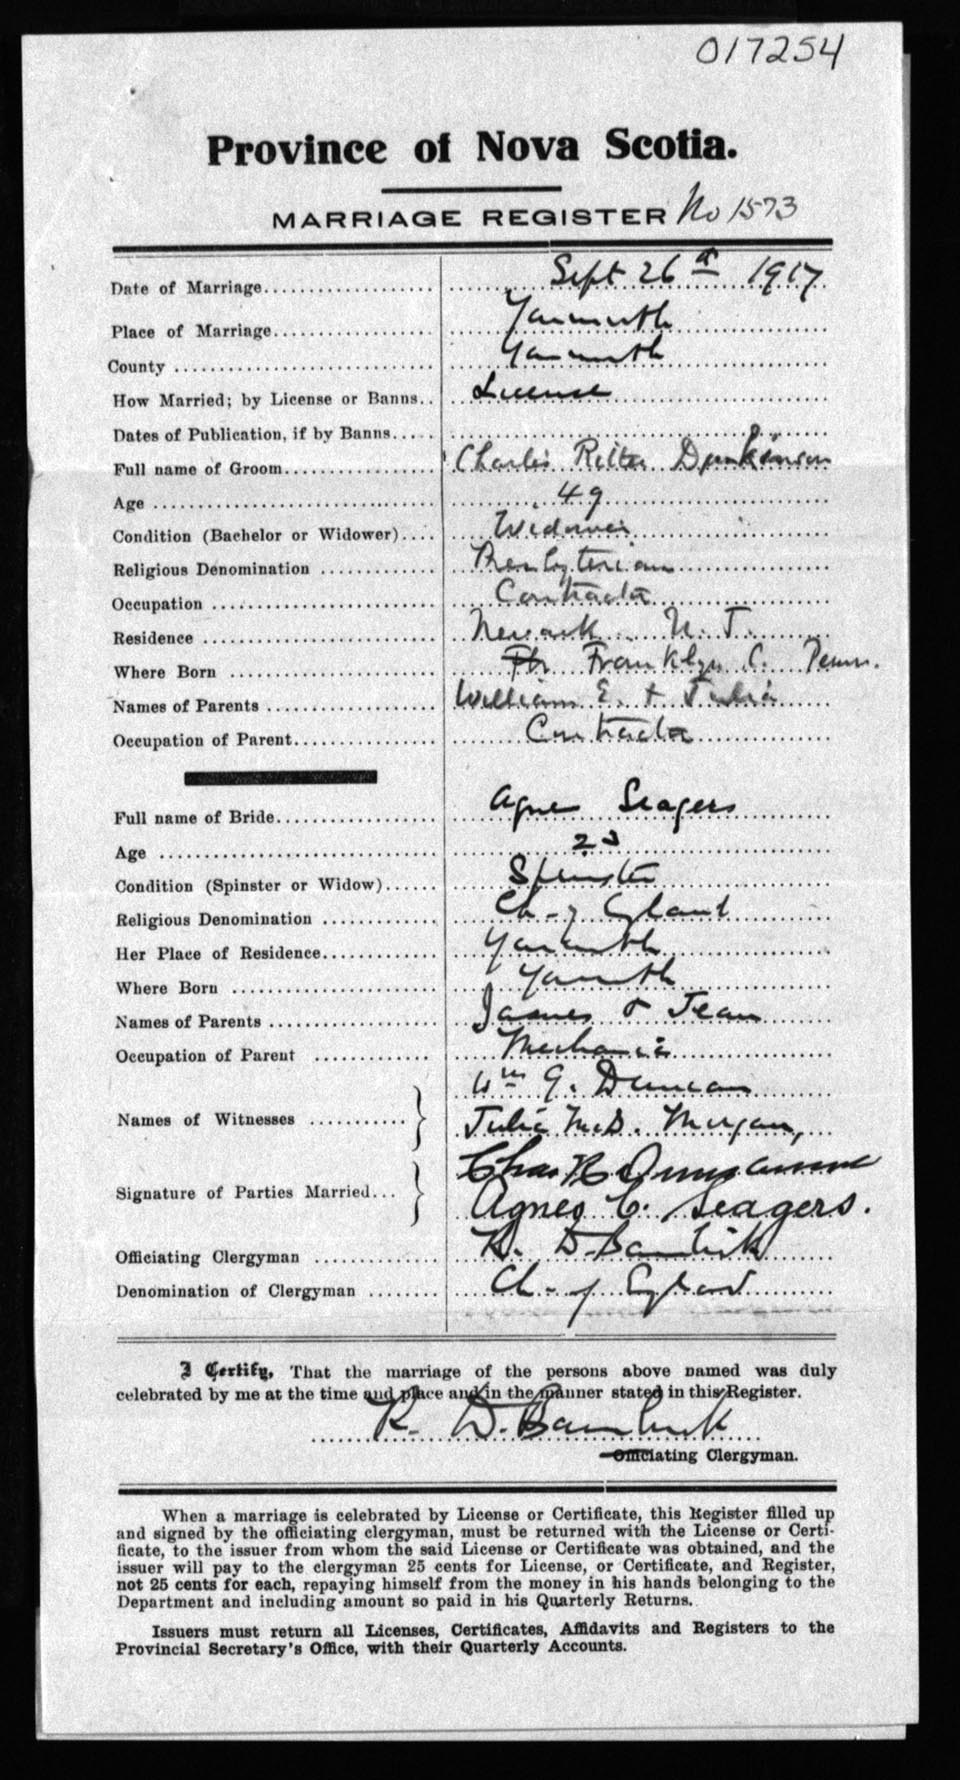 017254
Province of Nova Scotia.
MARRIAGE REGISTER No 1573
Date of Marriage.................... Sept 26th 1917
Place of Marriage.................. Yarmouth
County ............................. Yarmouth
How Married; by License or Banns.. License
Dates of Publication, if by Banns.....
Full name of Groom.................. Charles Ritter
Age ................................ 49
Condition (Bachelor or Widower).... Widower
Religious Denomination ............. Presbyterian
Occupation ......................... Contractor
Residence .......................... Newark N. J.
Where Born ......................... Franklyn C. Penn.
Names of Parents ................... William E. + Julia
Occupation of Parent................ Contractor
Full name of Bride.................. Agnes Seagers
Age ................................ 23
Condition (Spinster or Widow)...... Spinster
Religious Denomination ............. Ch of England
Her Place of Residence............. Yarmouth
Where Born ......................... Yarmouth
Names of Parents ................... James & Jean
Occupation of Parent ............... Mechanic
Wm G. Duncan
Names of Witnesses ...........
Julia McD. Morgan,
Chas R
Signature of Parties Married...
Agnes C. Seagers.
Officiating Clergyman .............. R. D. Bambrick
Denomination of Clergyman ........ Ch of England
I Certify, That the marriage of the persons above named was duly
celebrated by me at the time and place and in the manner stated in this Register.
R. D. Bambrick
Officiating Clergyman.
When a marriage is celebrated by License or Certificate, this Register filled up
and signed by the officiating clergyman, must be returned with the License or Certi-
ficate, to the issuer from whom the said License or Certificate was obtained, and the
issuer will pay to the clergyman 25 cents for License, or Certificate, and Register,
not 25 cents for each, repaying himself from the money in his hands belonging to the
Department and including amount so paid in his Quarterly Returns.
Issuers must return all Licenses, Certificates, Affidavits and Registers to the
Provincial Secretary's Office, with their Quarterly Accounts.